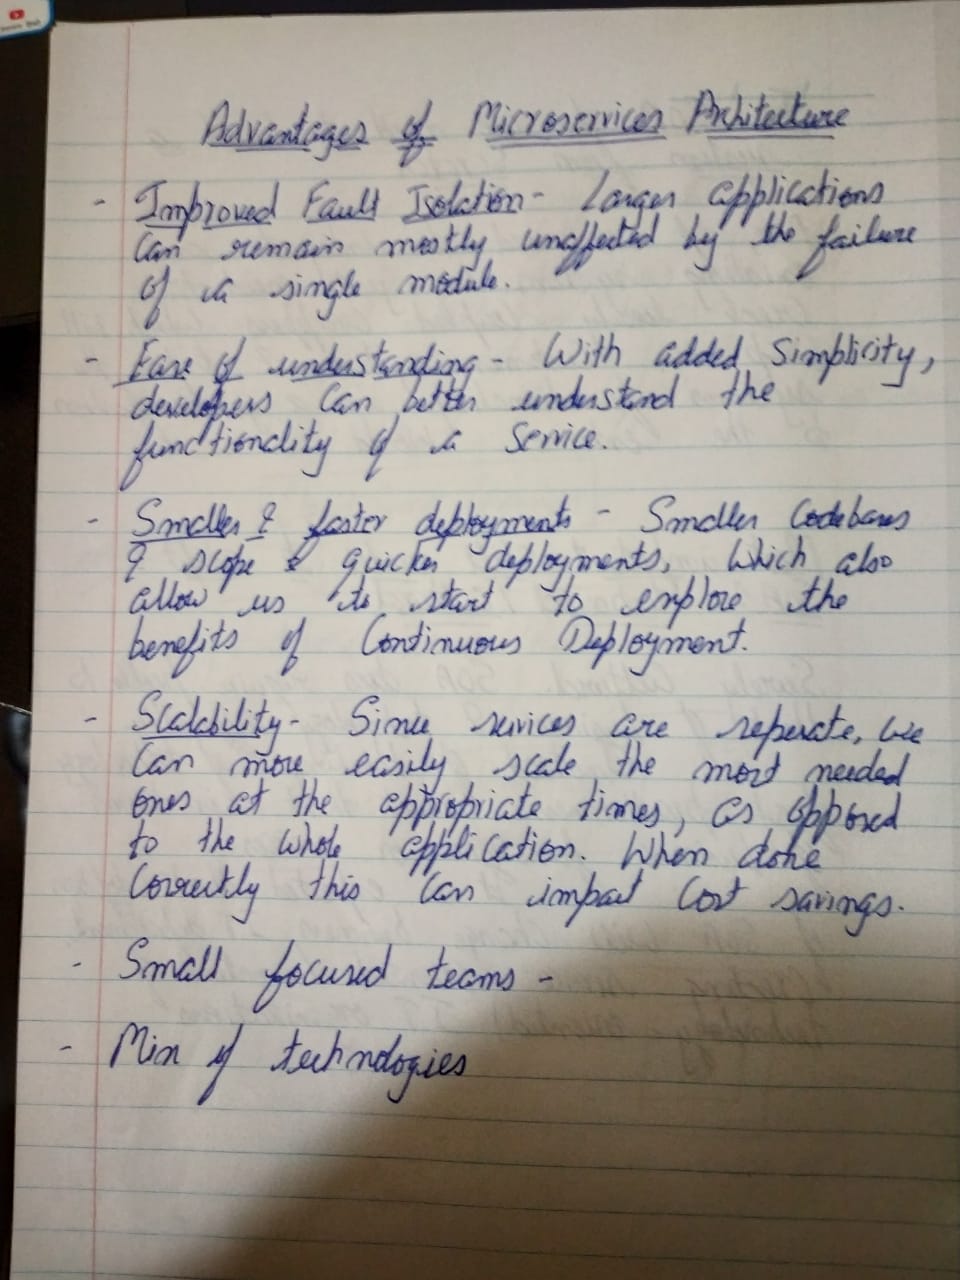 Advantages of Microservices Architecture
- Improved Fault Isolation - Larger applications
can remain mostly unaffected by the failure
of a single module.
- Ease of understanding - With added simplicity,
developers can better understand the
functionality of a service.
- Smaller & faster deployments - Smaller Codebases
& scope & quicker deployments, which also
allow us to start to explore the
benefits of Continuous Deployment.
- Scalability - Since services are seperate, we
can more easily scale the most needed
ones at the appropriate times, as opposed
to the whole application. When done
correctly this can impact cost savings.
- Small focused teams -
- Mix of technologies